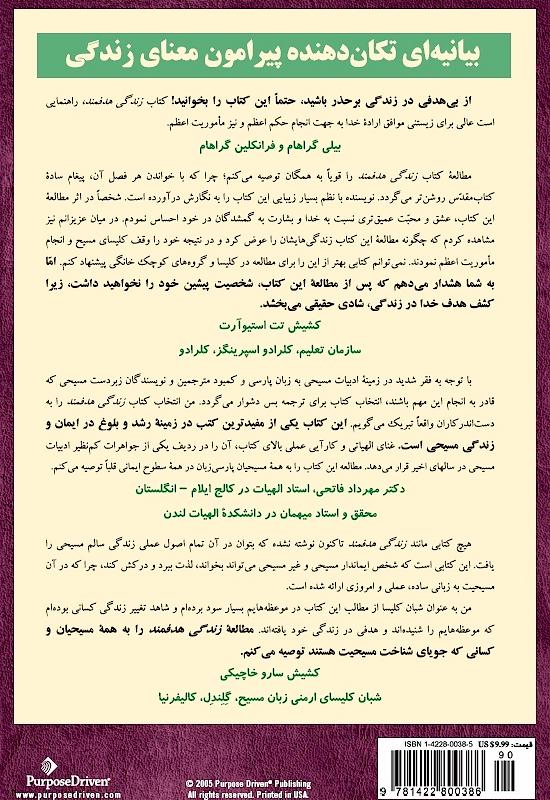 بیانیه‌ای تکان‌دهنده پیرامون معنای زندگی
از بی‌هدفی در زندگی برحذر باشید، حتماً این کتاب را بخوانید! کتاب زندگی هدفمند، راهنمایی
است عالی برای زیستنی موافق ارادهٔ خدا به جهت انجام حکم اعظم و نیز مأموریت اعظم.
بیلی گراهام و فرانکلین گراهام
مطالعهٔ کتاب زندگی هدفمند را قویاً به همگان توصیه می‌کنم؛ چرا که با خواندن هر فصل آن، پیغام سادهٔ
کتاب‌مقدّس روشن‌تر می‌گردد. نویسنده با نظم بسیار زیبایی این کتاب را به نگارش درآورده است. شخصاً در اثر مطالعهٔ
این کتاب، عشق و محبّت عمیق‌تری نسبت به خدا و بشارت به گمشدگان در خود احساس نمودم. در میان عزیزانم نیز
مشاهده کردم که چگونه مطالعهٔ این کتاب زندگی‌هایشان را عوض کرد و در نتیجه خود را وقف کلیسای مسیح و انجام
مأموریت اعظم نمودند. نمی‌توانم کتابی بهتر از این را برای مطالعه در کلیسا و گروه‌های کوچک خانگی پیشنهاد کنم. امّا
به شما هشدار می‌دهم که پس از مطالعهٔ این کتاب، شخصیت پیشین خود را نخواهید داشت، زیرا
کشف هدف خدا در زندگی، شادی حقیقی می‌بخشد.
کشیش تت استیوآرت
سازمان تعلیم، کلرادو اسپرینگز، کلرادو
با توجه به فقر شدید در زمینهٔ ادبیات مسیحی به زبان پارسی و کمبود مترجمین و نویسندگان زبردست مسیحی که
قادر به انجام این مهم باشند، انتخاب کتاب برای ترجمه بس دشوار می‌گردد. من انتخاب کتاب زندگی هدفمند را به
دست‌اندرکاران واقعاً تبریک می‌گویم. این کتاب یکی از مفیدترین کتب در زمینهٔ رشد و بلوغ در ایمان و
زندگی مسیحی است. غنای الهیاتی و کارآیی عملی بالای کتاب، آن را در ردیف یکی از جواهرات کم‌نظیر ادبیات
مسیحی در سالهای اخیر قرار می‌دهد. مطالعه این کتاب را به همهٔ مسیحیان پارسی‌زبان در همهٔ سطوح ایمانی قلباً توصیه می‌کنم.
دکتر مهرداد فاتحی، استاد الهیات در کالج ایلام – انگلستان
محقق و استاد میهمان در دانشکدهٔ الهیات لندن
هیچ کتابی مانند زندگی هدفمند تاکنون نوشته نشده که بتوان در آن تمام اصول عملی زندگی سالم مسیحی را
یافت. این کتابی است که شخص ایماندار مسیحی و غیر مسیحی می‌تواند بخواند، لذت ببرد و درکش کند، چرا که در آن
مسیحیت به زبانی ساده، عملی و امروزی ارائه شده است.
من به عنوان شبان کلیسا از مطالب این کتاب در موعظه‌هایم بسیار سود برده‌ام و شاهد تغییر زندگی کسانی بوده‌ام
که موعظه‌هایم را شنیده‌اند و هدفی در زندگی خود یافته‌اند. مطالعهٔ زندگی هدفمند را به همهٔ مسیحیان و
کسانی که جویای شناخت مسیحیت هستند توصیه می‌کنم.
کشیش سارو خاچیکی
شبان کلیسای ارمنی زبان مسیح، گِلِندِل، کالیفرنیا
ISBN 1-4228-0038-5 قیمت: US $9.99
90
9 781422 800386
PurposeDriven®
www.purposedriven.com
© 2005 Purpose Driven® Publishing
All rights reserved. Printed in USA.